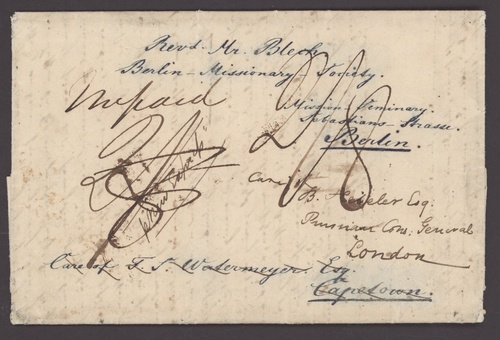 Revd. Mr. Blech
Berlin - Missionary - Society.
Unpaid
Mission Seminary.
Sebastians Strasse.
Berlin.
Care of
B. Hebeler Esq:
Prussian Cons: General
London
Care of F. S. Watermeyer Esq.
Capetown.